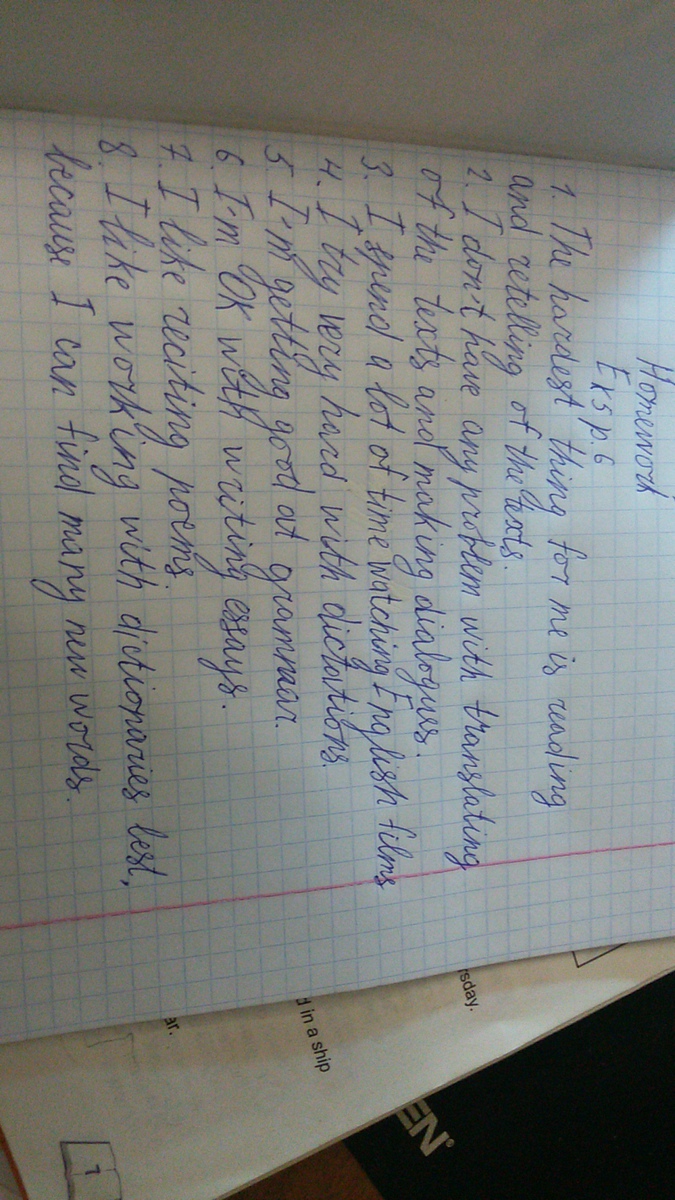 Homework
Ex 5 p. 6
1. The hardest thing for me is reading
and retelling of the texts.
2. I don't have any problem with translating
of the texts and making dialogues.
3. I spend a lot of time watching English films
4. I try very hard with dictations.
5. I'm getting good at grammar.
6. I'm OK with writing essays.
7. I like reciting poems.
8. I like working with dictionaries best,
because I can find many new words.
rsday.
d in a ship
ar.
EN®
1